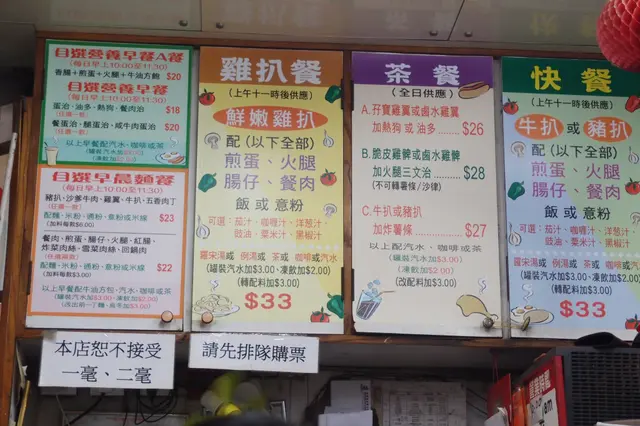 自選營養早餐A餐
(每日早上10:00至11:30)
香腸+煎蛋+火腿+牛油方飽 $20
自選營養早餐
(每日早上10:00至11:30)
蛋治,油多,熱狗,餐肉治 $18
(任擇一款)
餐蛋治、腿蛋治、咸牛肉蛋治 $20
以上早餐配汽水、咖啡或茶
(罐裝汽水加$3.00)
(凍飲加$2.00)
自選早晨麵餐
(每日早上10:00至11:30)
豬扒,沙爹牛肉,雞翼、牛扒,五香肉丁
(任擇一款)
配麵、米粉、通粉、意粉或米線 $23
(加料每款$6.00)
餐肉、煎蛋、腸仔、火腿、紅腸、
炸菜肉絲、雪菜肉絲、回鍋肉
(任擇兩款)
配麵、米粉、通粉、意粉或米線 $22
(加料每款$3.00)
以上早餐配牛油方包、汽水、咖啡或茶
(罐裝汽水加$3.00、凍飲加$2.00)
雞扒餐
(上午十一時後供應)
鮮嫩雞扒
配(以下全部)
煎蛋、火腿
腸仔、餐肉
飯 或 意粉
可選:茄汁、咖喱汁、洋葱汁
豉油、粟米汁、黑椒汁
羅宋湯或 例湯或 茶 或 咖啡或汽水
(罐裝汽水加$3.00、凍飲加$2.00)
(轉配料加$3.00)
$33
茶餐
(全日供應)
A. 孖寶雞翼或鹵水雞翼
加熱狗 或 油多 ........ $26
B. 脆皮雞髀或鹵水雞髀
加火腿三文治 ........ $28
(不可轉薯條/沙律)
C. 牛扒或豬扒
加炸薯條 ............ $27
以上配汽水、咖啡或茶
(罐裝汽水加$3.00)
(凍飲加$2.00)
(改配料加$3.00)
快餐
(上午十一時後供應)
牛扒 或 豬扒
配(以下全部)
煎蛋、火腿
腸仔、餐肉
飯 或 意粉
可選:茄汁、咖喱汁、洋葱汁
豉油、粟米汁、黑椒汁
羅宋湯或 例湯或 茶 或 咖啡或汽水
(罐裝汽水加$3.00、凍飲加$2.00)
(轉配料加$3.00)
$33
本店恕不接受
一毫、二毫
請先排隊購票